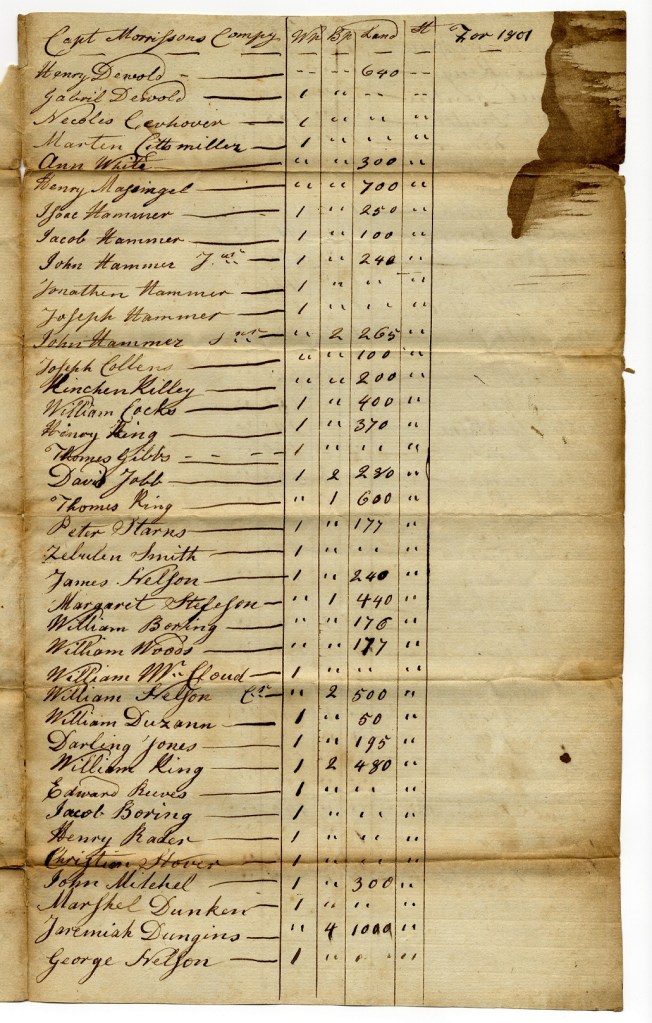 Capt Morrissons Compy Wh Bp Land St For 1801
Henry Dewold - -- -- 640 --
Gabril Dewold 1 " -- "
Necoles 1 " " " "
Marten Cittsmiller 1 " " " "
Ann White " " 300 "
Henry Masengel " " 700 "
Isaac Hammer 1 " 250 "
Jacob Hammer 1 " 100 "
John Hammer Junr 1 " 240 "
Jonathen Hammer 1 " " " "
Joseph Hammer 1 " " " "
John Hammer Snr " 2 265 "
Joseph Collens " " 100 "
Kinchen Killey " " 200 "
William Cocks 1 " 400 "
Hinry King 1 " 370 "
Thomes Gibbs - - - 1 " " " "
David Jobb 1 2 230 "
Thomes King " 1 600 "
Peter Starns 1 " 177 "
Zebulen Smith 1 " " " "
James Nelson 1 " 240 "
Margaret Stefeson " 1 440 "
William Boring " " 176 "
William Woods " " 177 "
William McCloud 1 " " " "
William Nelson " 2 500 "
William Duzann 1 " 50 "
Darling Jones 1 " 195 "
William King 1 2 480 "
Edward Reeves 1 " " " "
Jacob Boring 1 " " " "
Henry Rader 1 " " " "
Christion Hover 1 " " " "
John Mitchel 1 " 300 "
Marshel Dunken 1 " " " "
Jeremiah Dungins " 4 1000 "
George Nelson 1 " " " "